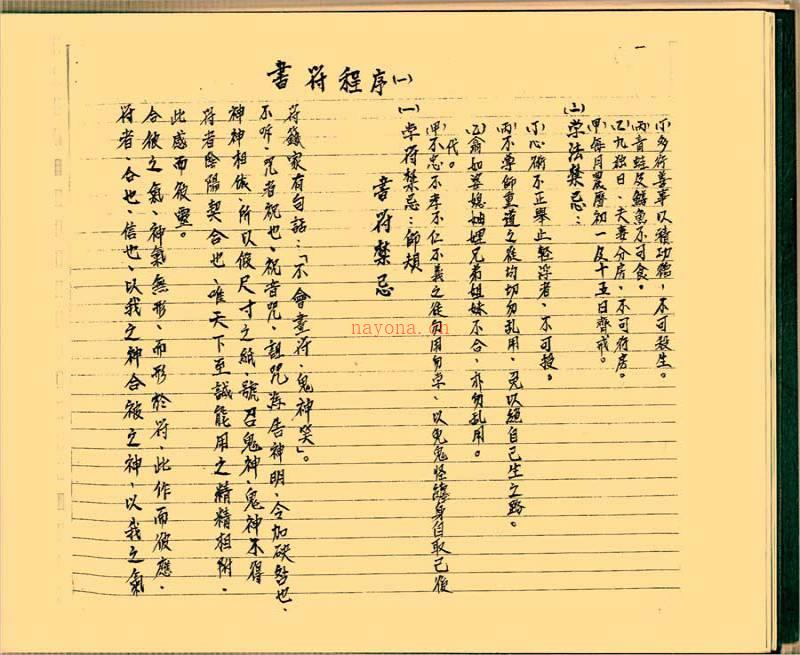 一
書符程序(一)
符者、合也、信也、以我之神合彼之神、以我之氣
合彼之氣、神氣無形、而形於符、此作而彼應、
此感而彼靈。
符者陰陽契合也、唯天下至誠能用之精精相附、
神神相依、所以假尺寸之紙、號召鬼神、鬼神不得
不、咒者祝也、祝音咒、詛咒為告神明、令加殃咎也、
符籙家有句話：「不會畫符、鬼神笑」。
書符禁忌
(一)学符禁忌：師
(甲)不忠不孝不仁不義之徒勿用勿学、以免鬼怪纏身自取己後
代。
(乙)翁如婆媳妯娌兄弟姐妹不合、亦勿乱用。
(丙)不尊師重道之徒均切勿乱用、免以絕自己生之路。
(丁)心術不正舉止輕浮者、不可授。
(二)学法禁忌：
(甲)每月農曆初一及十五日齊戒。
(乙)九日、夫妻分房、不可行房。
(丙)青蛙及鱔魚不可食。
(丁)多行善事以積功德、不可殺生。
nayona.cn